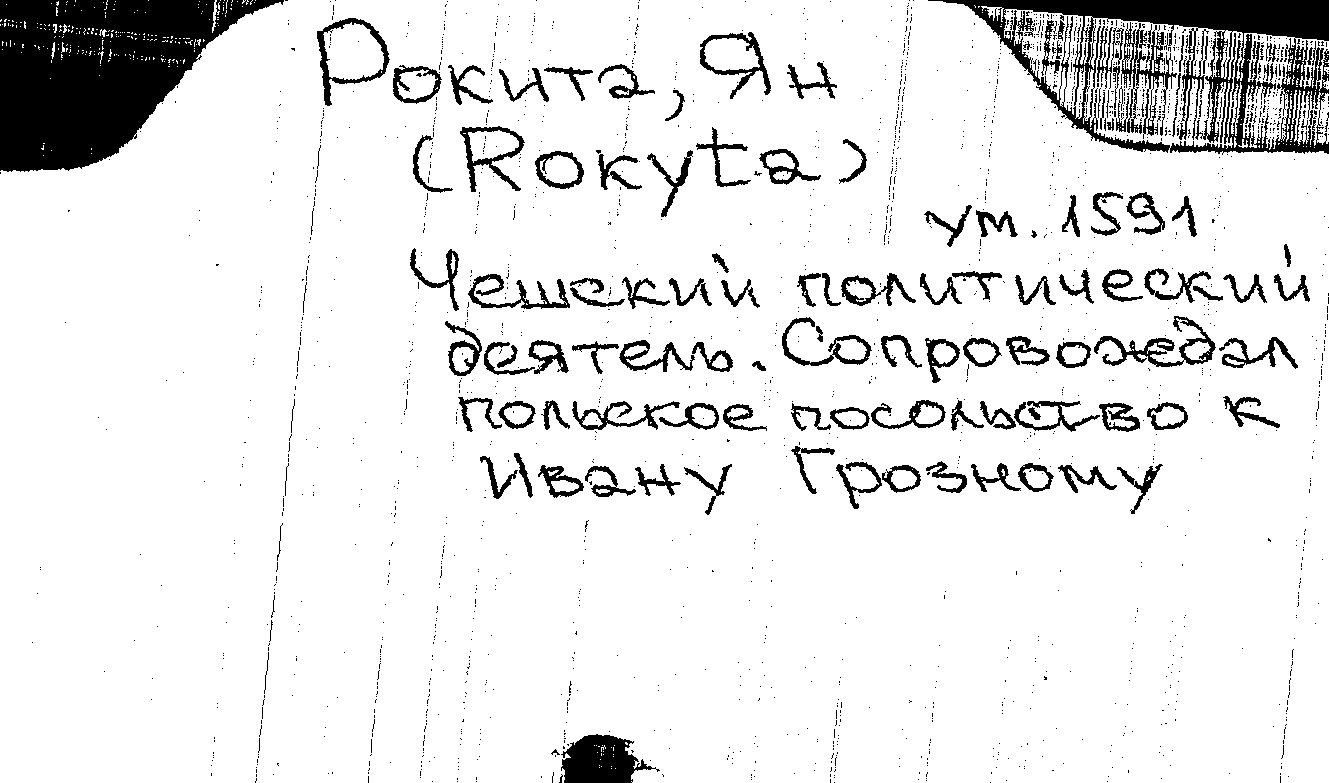 Рокита, Ян
(Rokyta)
ум. 1591
Чешский политический
деятель. Сопровождал
польское посольство к
Ивану Грозному